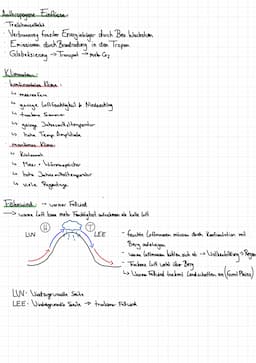 Anthropogene Einflüsse
- Treibhauseffekt
- Verbrennung fossiler Energieträger durch Bev. Wachstum
- Emissionen durch Brandrodung in den Tropen
- Globalisierung → Transport → mehr
Klimate:
kontinentales Klima:
↳ meeresfern
↳ geringe Luftfeuchtigkeit & Niederschlag
↳ trockene Sommer
↳ geringe Jahresmitteltemperatur
↳ hohe Temp. Amplitude
maritimes Klima:
↳ Küstennah
↳ Meer = Wärmespeicher
↳ hohe Jahresmitteltemperatur
↳ viele Regentage
Föhnwind → warmer Fallwind
→ warme Luft kann mehr Feuchtigkeit aufnehmen als kalte Luft
H T
LUV LEE
- feuchte Luftmassen müssen durch Konfrontation mit
Berg aufsteigen
- warme Luftmassen kühlen sich ab → Wolkenbildung → Regen
- Trockene Luft weht über Berg
↳ Warmer Fallwind
LUV: Windzugewandte Seite
LEE: Windabgewandte Seite → trockener Fallwind